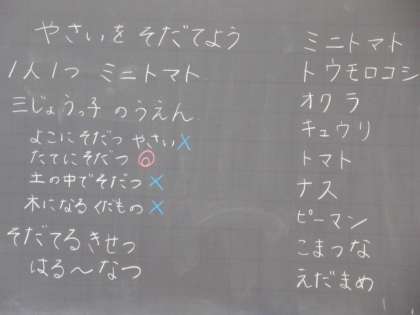 やさいを そだてよう
1人1つ ミニトマト
三じょうっ子 のうえん
よこにそだつ やさい×
たてにそだつ ◎
土の中でそだつ ×
木になるくだもの ×
そだてるきせつ
はる〜なつ
ミニトマト
トウモロコシ
オクラ
キュウリ
トマト
ナス
ピーマン
こまつな
えだまめ